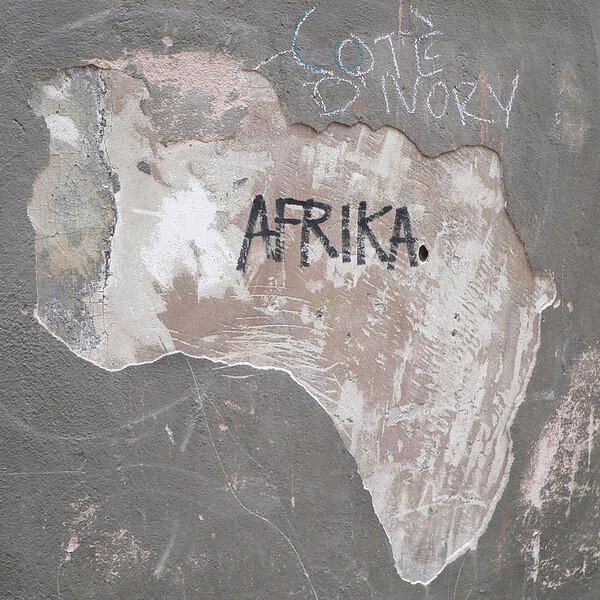 COTÊ
D'IVORY
AFRIKA.